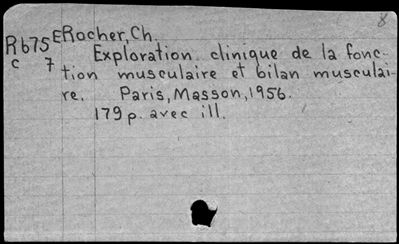 8
Rb75 ERocher, Ch.
c 7 Exploration clinique de la fonc-
tion musculaire et bilan musculai-
re. Paris, Masson, 1956.
179 p. avec ill.